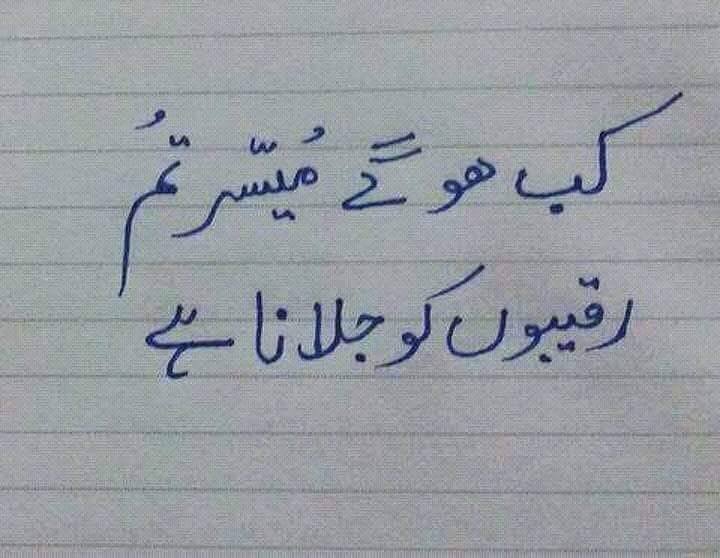 کب ھو گے مُیّسر تمُ
رقیبوں کو جلانا ہے